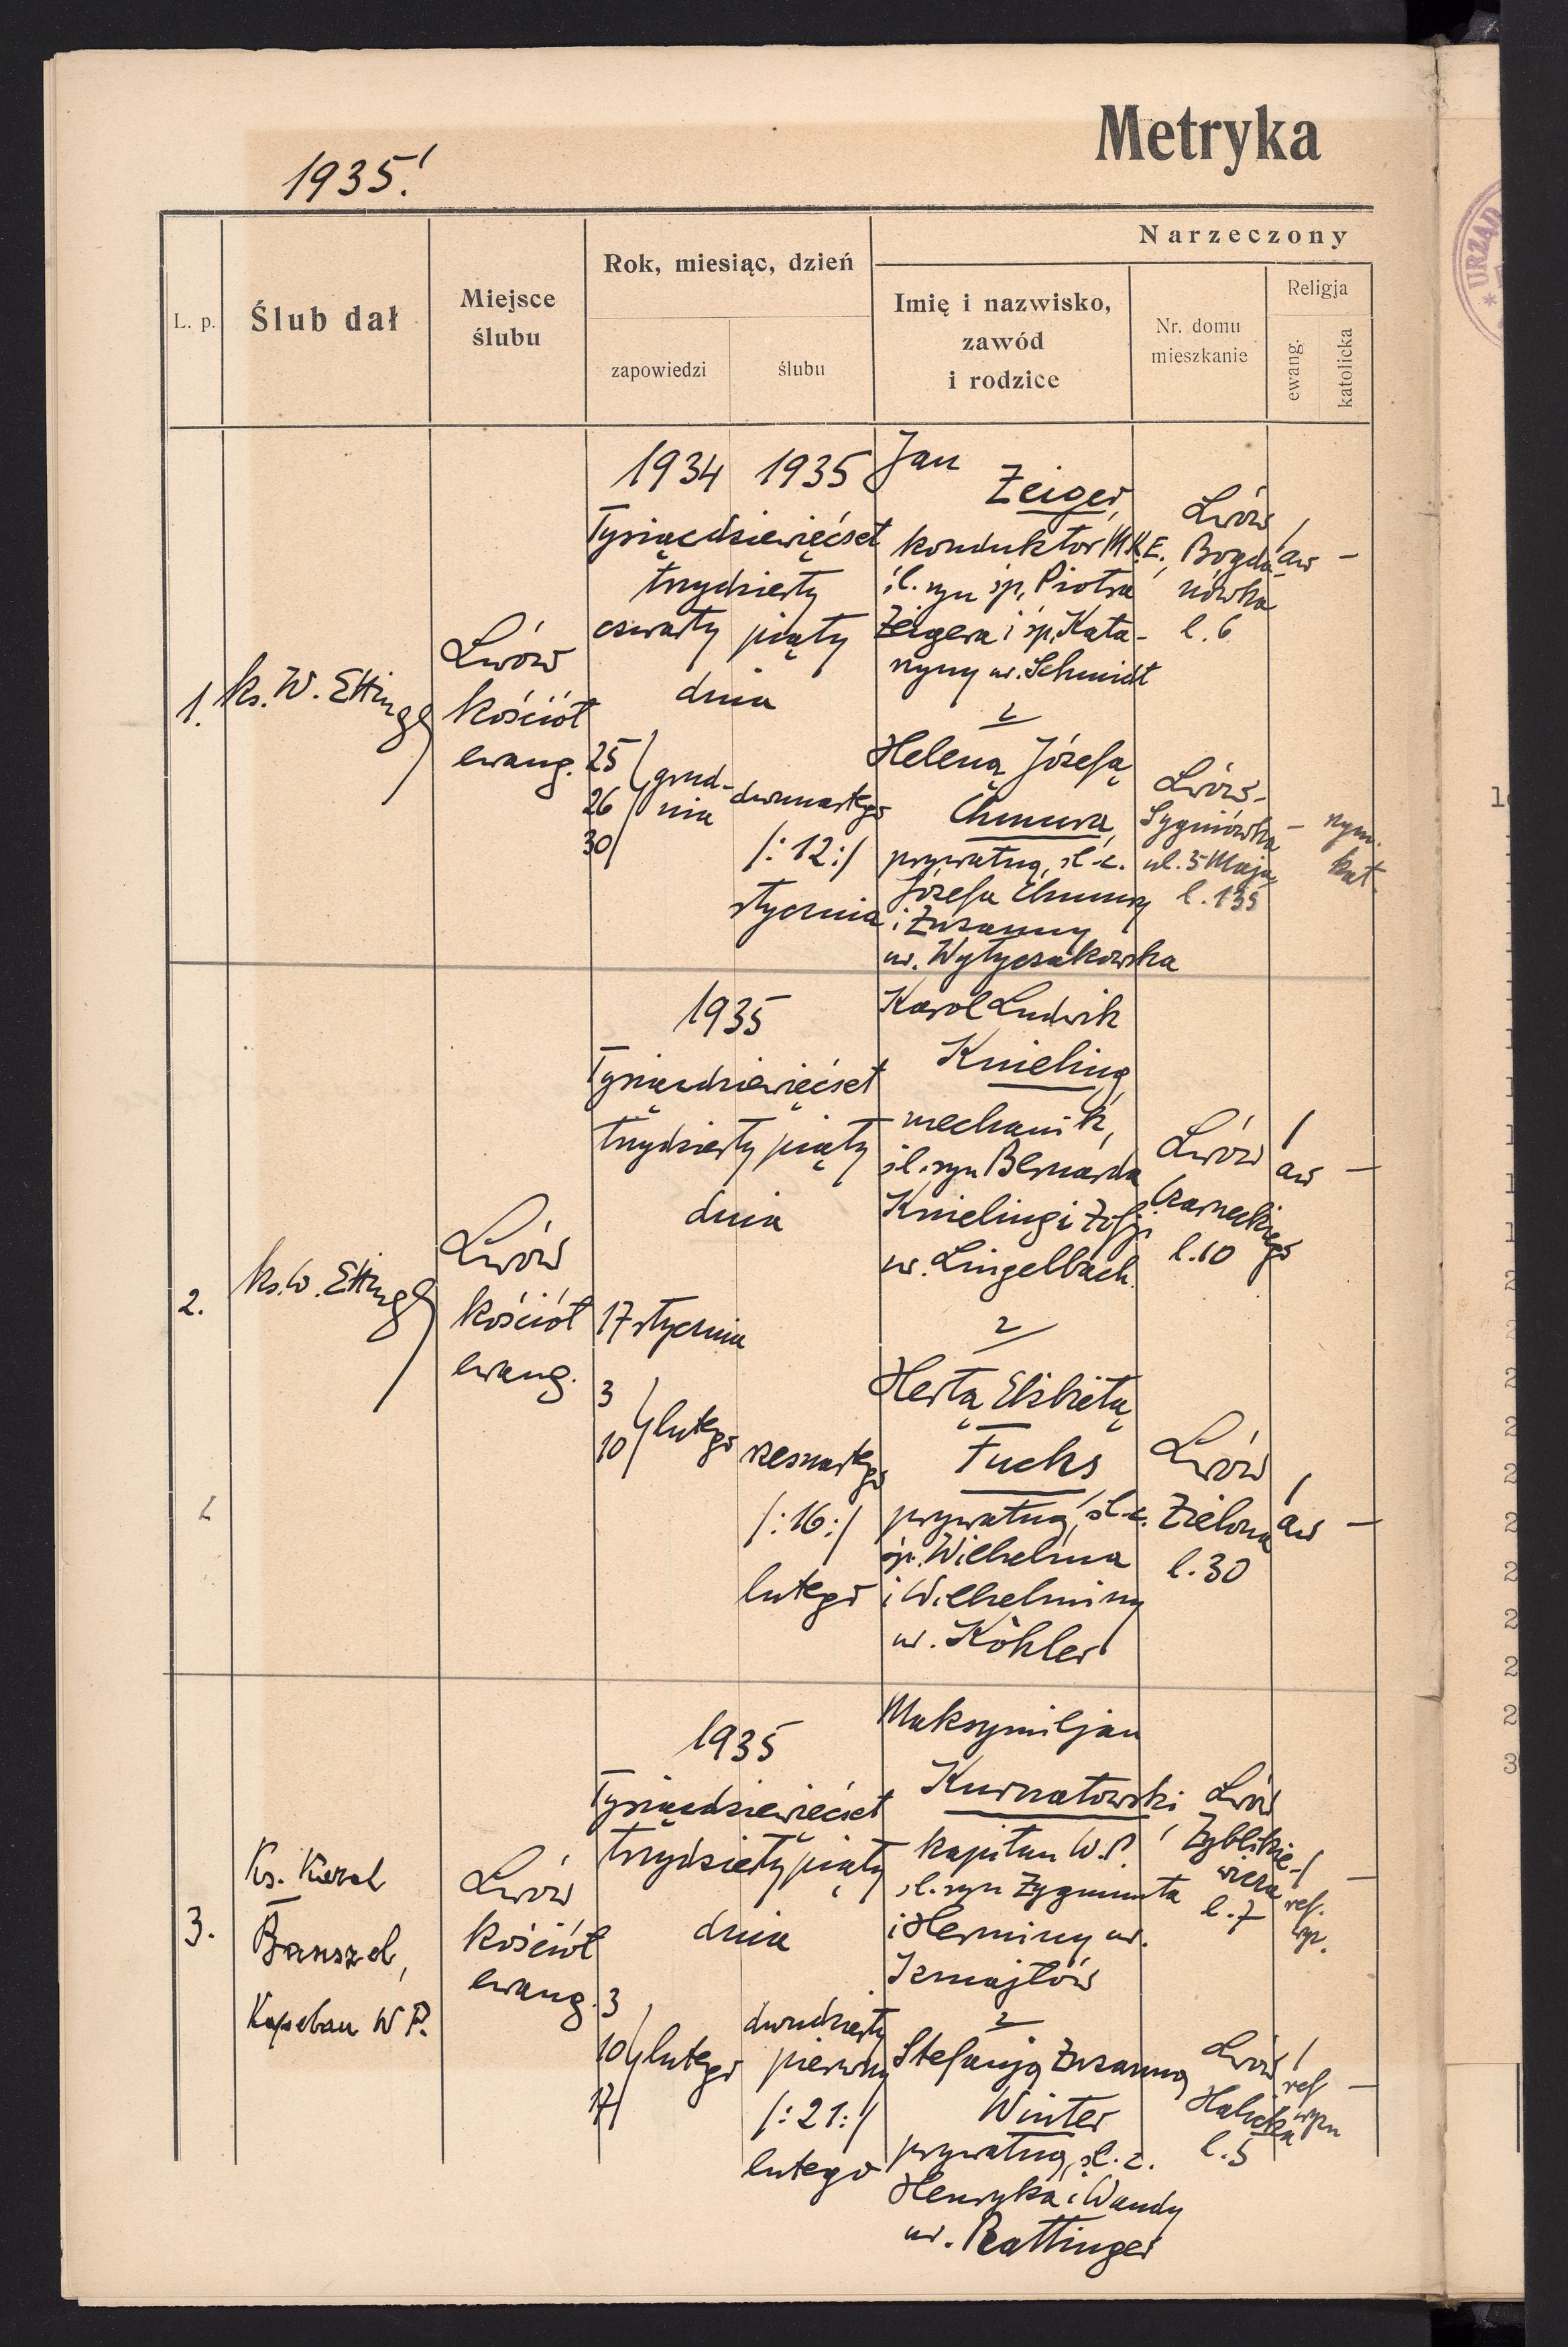 Metryka
1935!
L. p.
Ślub dał
Miejsce
ślubu
Rok, miesiąc, dzień
zapowiedzi
ślubu
Narzeczony
Imię i nazwisko,
zawód
i rodzice
Nr. domu
mieszkanie
Religja
ewang.
katolicka
1.
ks. W. Ettinger
Lwów
kościół
ewang.
1934 1935
Tysiącdziewięćset
trzydziesty
czwarty piąty
dnia
25
26 grud-
30 nia
dwunastego
/:12:/
stycznia
Jan
Zeiger,
konduktor M.K.E.,
śl. syn śp. Piotra
Zeigera i śp. Kata-
rzyny ur. Schmidt
z
Heleną Józefą
Chmura,
prywatną, śl. c.
Józefa Chmury
i Zuzanny
ur. Wytyczakowska
Lwów
Bogda-
nówka
l. 6
aw —
Lwów-
Sygniówka
ul. 3 Maja,
l. 135
— rzym.
kat.
2.
ks. W. Ettinger
Lwów
kościół
ewang.
1935
Tysiącdziewięćset
trzydziesty piąty
dnia
17 stycznia
3
10 lutego
szesnastego
/:16:/
lutego
Karol Ludwik
Knieling,
mechanik,
śl. syn Bernarda
Knieling i Zofji
ur. Lingelbach.
z
Hertą Elżbietą
Fuchs
prywatną, śl. c.
śp. Wilhelma
i Wilhelminy
ur. Köhler
Lwów
Czarneckiego
l. 10
aw —
Lwów
Zielona
l. 30
aw —
3.
Ks. Karol
Banszel,
Kapelan W P.
Lwów
kościół
ewang.
1935
Tysiącdziewięćset
trzydziesty piąty
dnia
3
10 lutego
17
dwudziesty
pierwszy
/:21:/
lutego
Maksymiljan
Kurnatowski,
kapitan W.P.
śl. syn Zygmunta
i Herminy ur.
Izmajłów
z
Stefanją Zuzanną
Winter
prywatną, śl. c.
Henryka i Wandy
ur. Rattinger
Lwów
Zyblikie-
wicza
l. 7
ref. —
wyz.
Lwów
Halicka
l. 5
ref —
wyzn
URZĄD